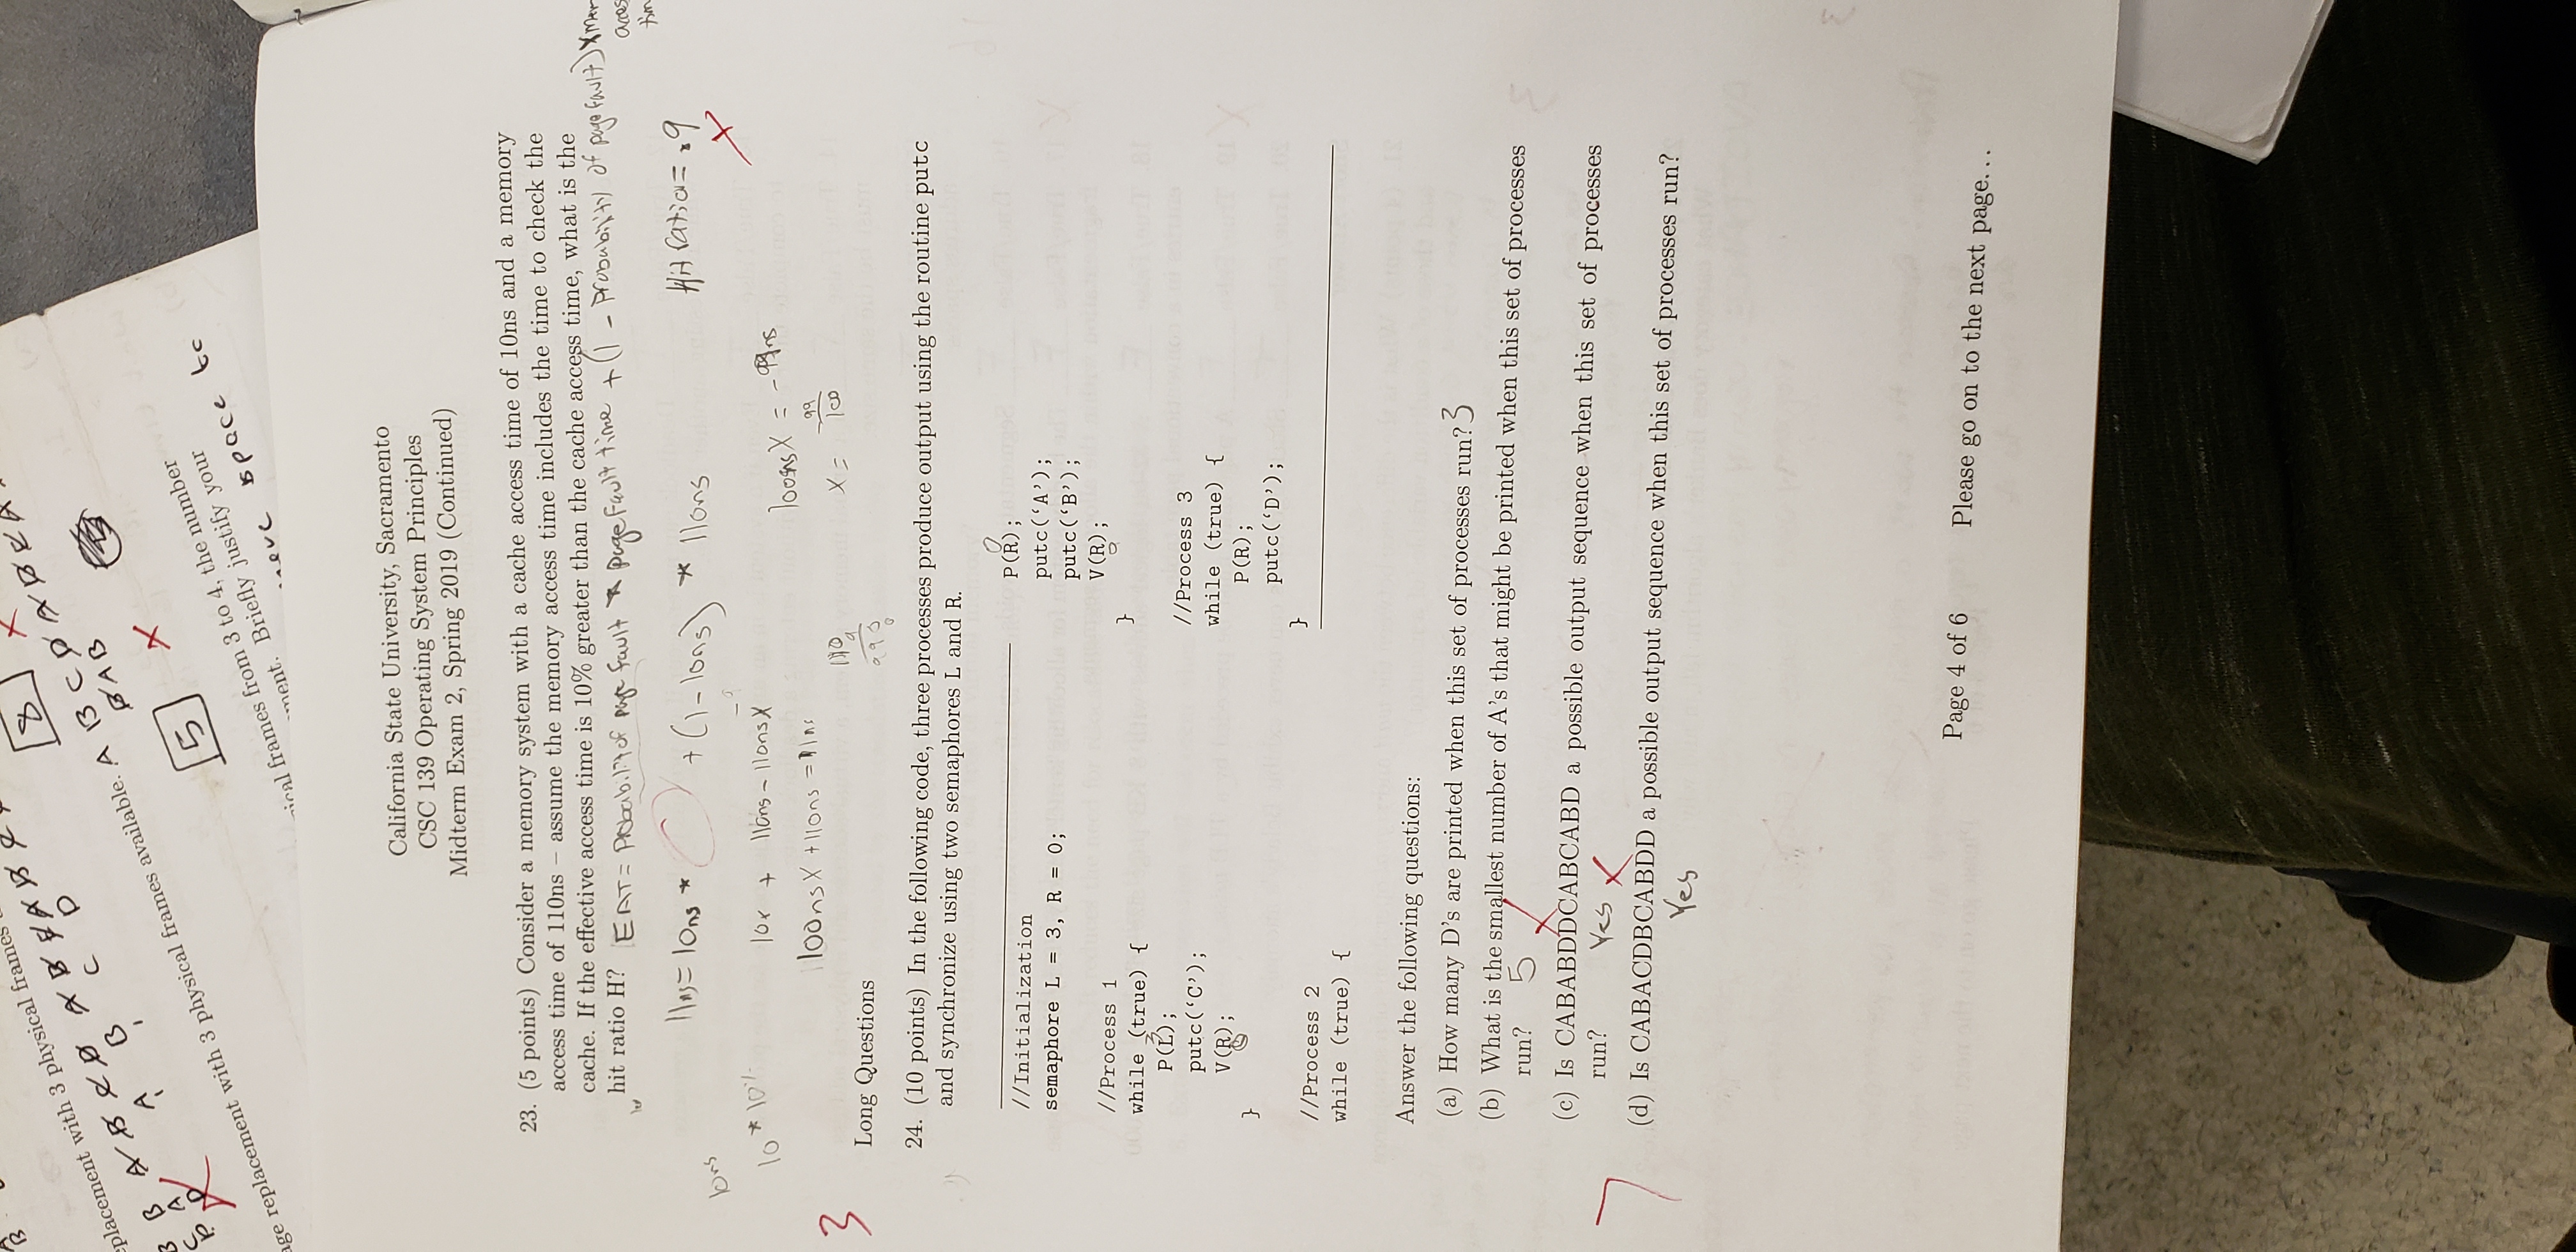 placement with 3 physical frames
8
age replacement with 3 physical frames available. A B C D A B C A
D A B
5
ical frames from 3 to 4, the number
ment. Briefly justify your
space to
California State University, Sacramento
CSC 139 Operating System Principles
Midterm Exam 2, Spring 2019 (Continued)
23. (5 points) Consider a memory system with a cache access time of 10ns and a memory
access time of 110ns – assume the memory access time includes the time to check the
cache. If the effective access time is 10% greater than the cache access time, what is the
hit ratio H? EAT = Probability of page fault * page fault time + (1 - Probability of page fault) x mem
acces
tim
11ns = 10ns * + (1 - 10ns) * 110ns
Hit ratio = .9
10ns
10 * 10%
10x + 110ns - 110nsX
100nsX = -99ns
100nsX + 110ns = 11ns
x = 99/100
3
Long Questions
24. (10 points) In the following code, three processes produce output using the routine putc
and synchronize using two semaphores L and R.
//Initialization
semaphore L = 3, R = 0;
//Process 1
while (true) {
P(L);
3
putc(‘C’);
V(R);
}
//Process 2
while (true) {
0
P(R);
putc(‘A’);
putc(‘B’);
V(R);
}
//Process 3
while (true) {
P(R);
putc(‘D’);
}
Answer the following questions:
(a) How many D’s are printed when this set of processes run? 3
(b) What is the smallest number of A’s that might be printed when this set of processes
run? 5
(c) Is CABABDDCABCABD a possible output sequence when this set of processes
run? Yes
7
(d) Is CABACDBCABDD a possible output sequence when this set of processes run?
Yes
Page 4 of 6 Please go on to the next page...